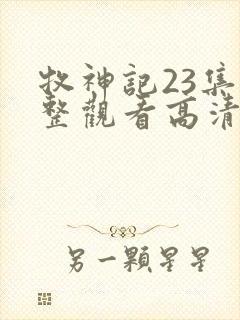 牧神記23集
整觀看高清
另一顆星星